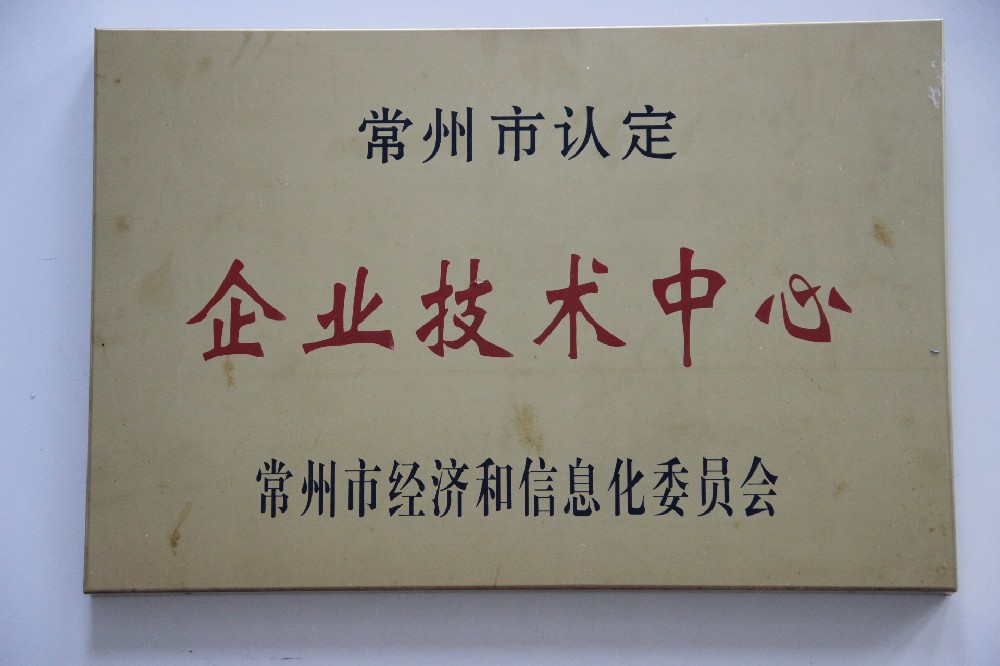 常州市认定
企业技术中心
常州市经济和信息化委员会